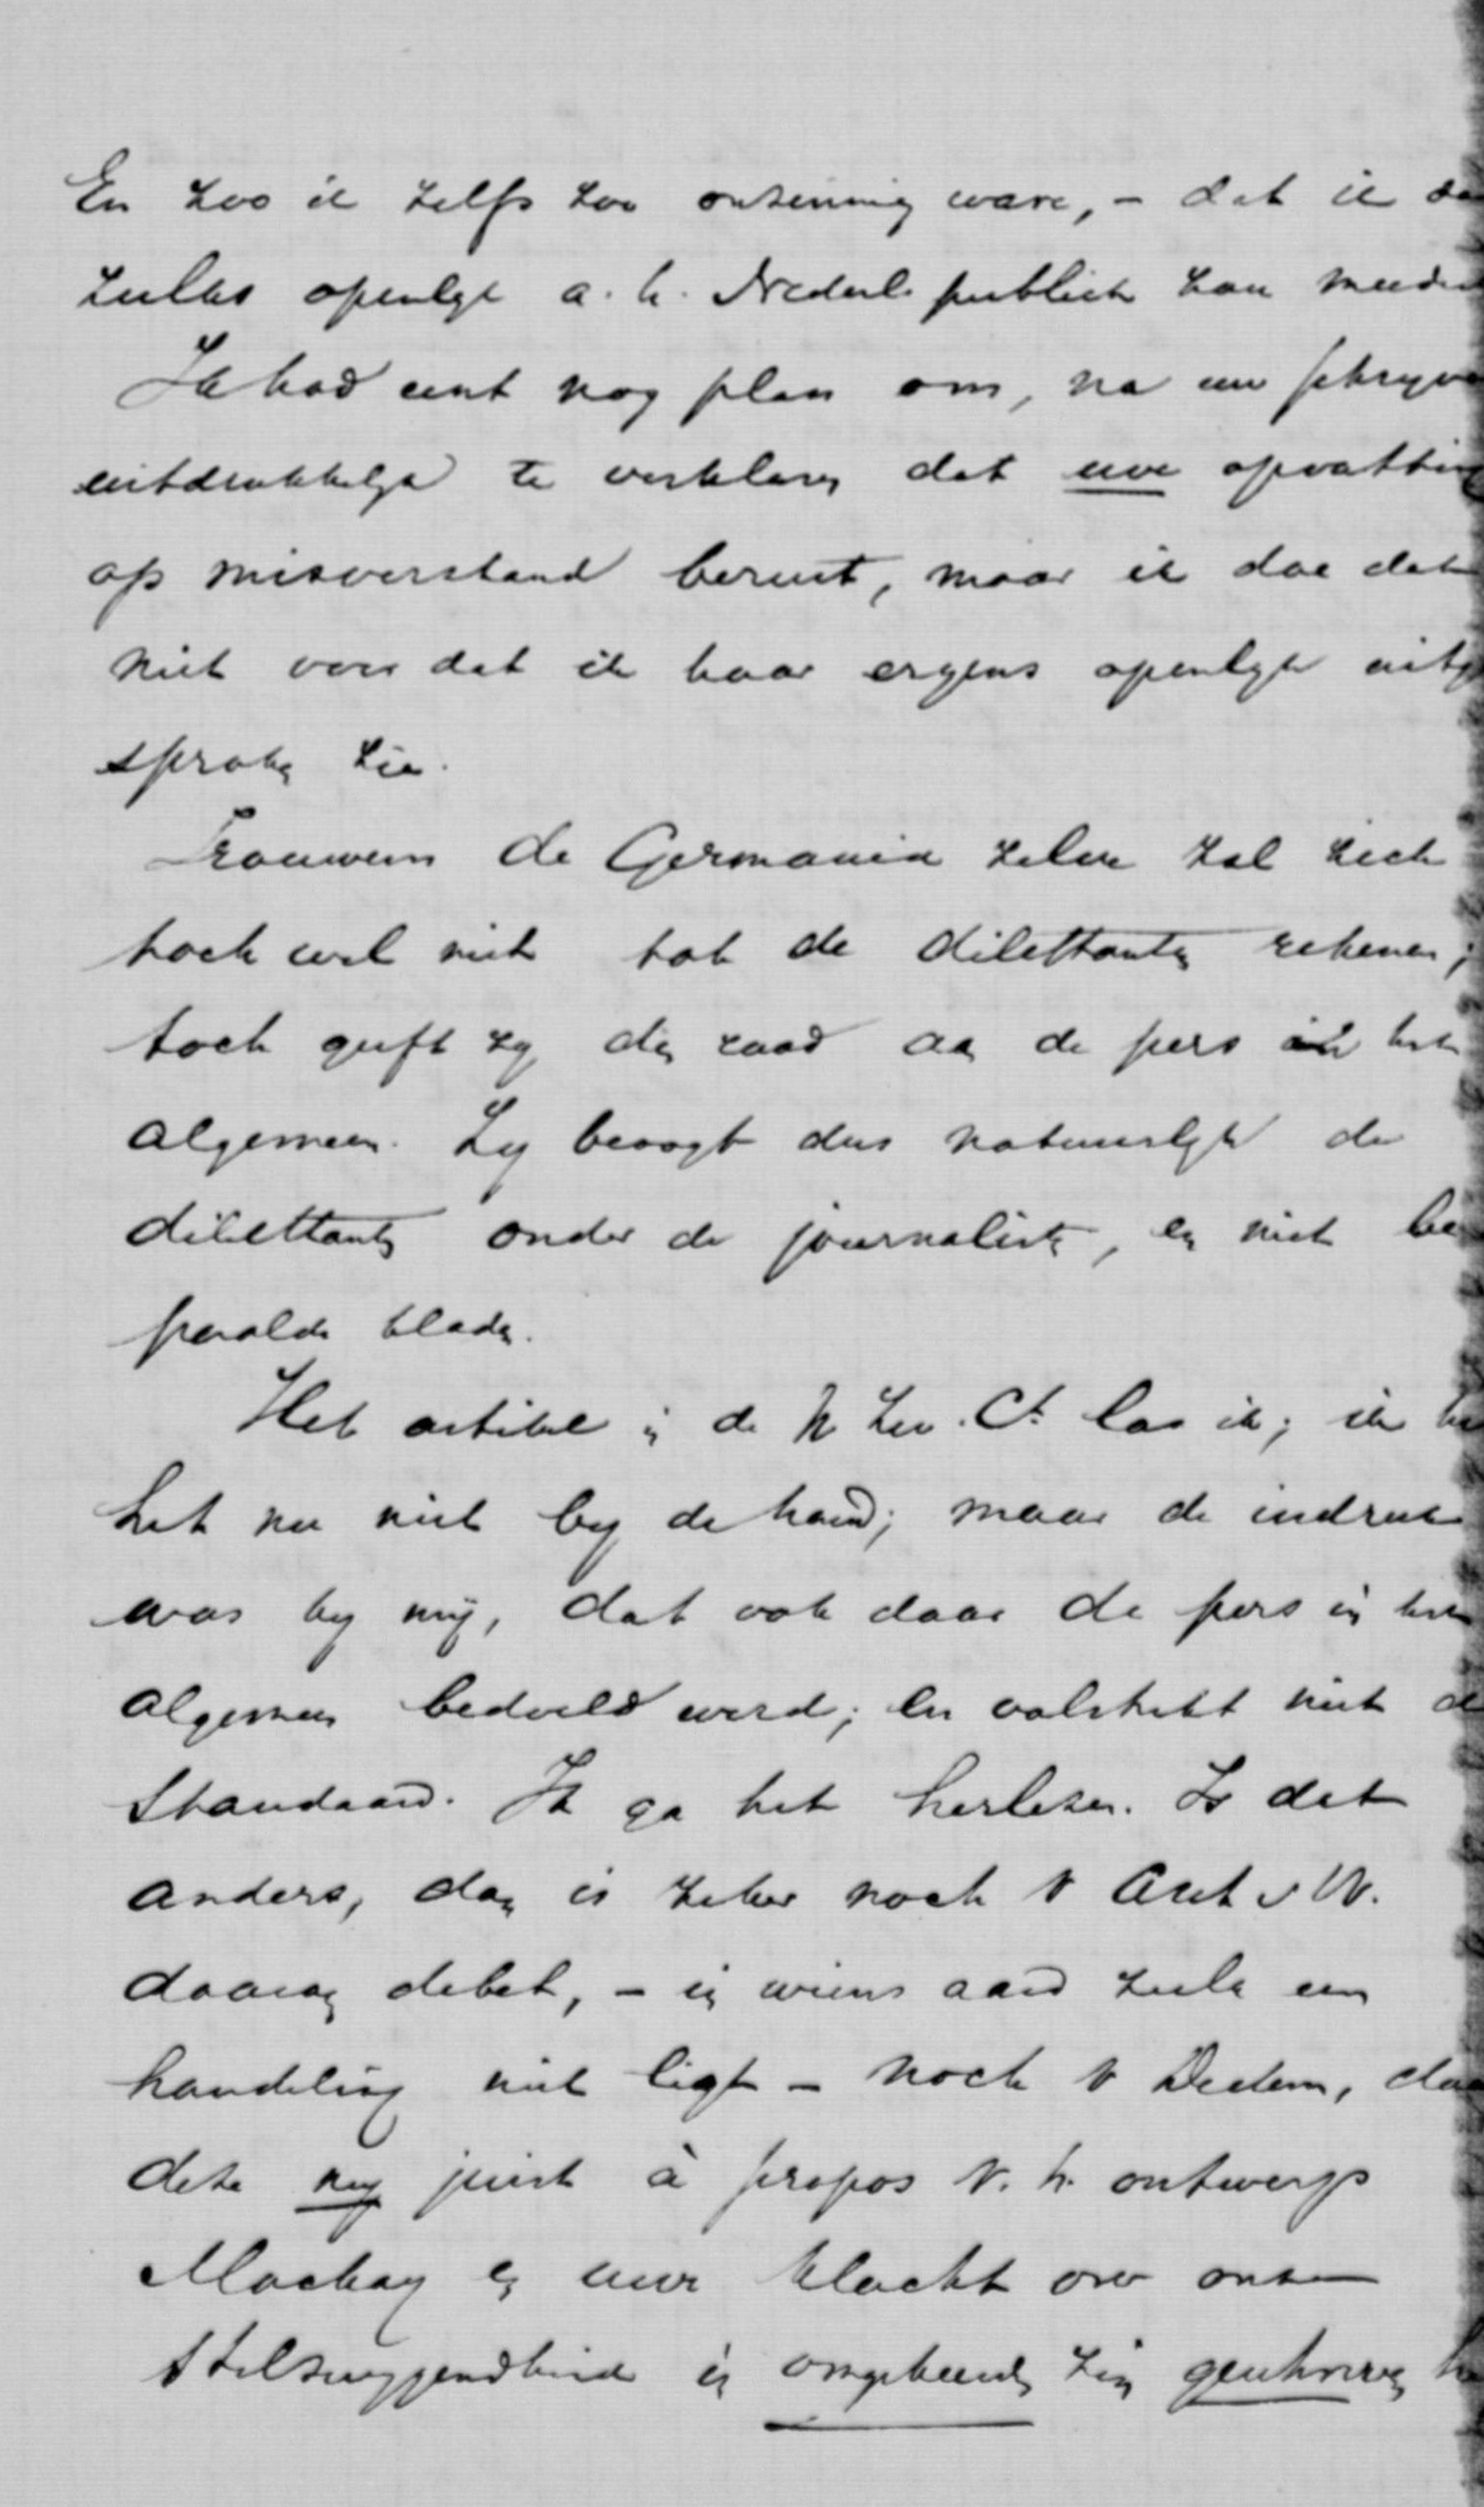 En zoo ik zelfs zoo onzinnig ware, - dat ik
zulks openlyk a. h. Nederl. publiek zou
Ik had eerst nog plan om, na uw schryven
uitdrukkelyk te verklaren dat uwe opvatting
op misverstand berust, maar ik doe dat
niet voor dat ik haar ergens openlyk uitge
sproken zie.
Trouwens de Germania zelve zal zich
toch wel niet tot de dilettanten rekenen;
toch geeft zy dien raad aan de pers in het
algemeen. Zy beoogt dus natuurlyk de
dilettanten onder de journalisten, en niet be
paalde bladen.
Het artikel in de N Zw. Ct. las ik; ik
het nu niet by de hand; maar de indruk
was by my, dat ook daar de pers in het
algemeen bedoeld werd; en volstrekt niet de
Standaard. Ik ga het herlezen. Is dat
anders, dan is zeker noch v Asch v W.
daaraan debet, - in wiens aard zulk een
handeling niet ligt - noch v Dedem,
deze my juist à propos v. h. ontwerp
Mackay en uwe klacht over onze
stilzwygendheid in omgekeerden zin geschreven